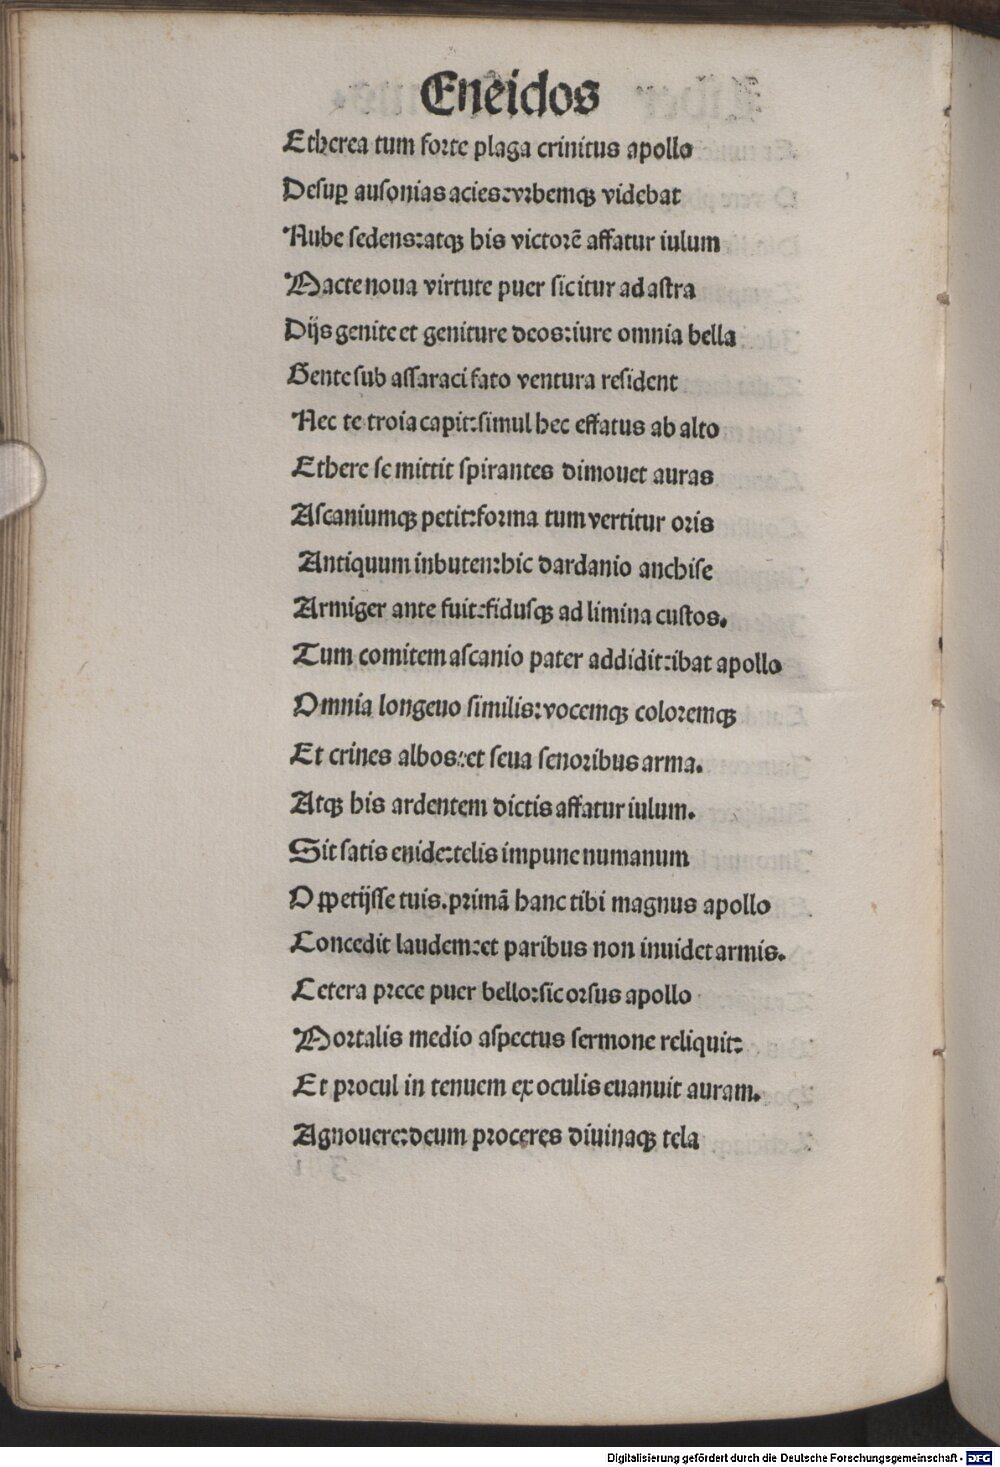 Eneidos
Etherea tum forte plaga crinitus apollo
Desuꝑ ausonias acies:vrbemqꝫ videbat
Nube sedens:atqꝫ his victorē affatur iulum
Macte noua virtute puer sic itur ad astra
Dijs genite et geniture deos:iure omnia bella
Gente sub assaraci fato ventura resident
Nec te troia capit:simul hec effatus ab alto
Ethere se mittit spirantes dimouet auras
Ascaniumqꝫ petit:forma tum vertitur oris
Antiquum inbuten:hic dardanio anchise
Armiger ante fuit:fidusqꝫ ad limina custos.
Tum comitem ascanio pater addidit:ibat apollo
Omnia longeuo similis:vocemqꝫ coloremqꝫ
Et crines albos:et seua senoribus arma.
Atqꝫ his ardentem dictis affatur iulum.
Sit satis enide:telis impune numanum
Oꝑpetijsse tuis.primā hanc tibi magnus apollo
Concedit laudem:et paribus non inuidet armis.
Cetera prece puer bello:sic orsus apollo
Mortalis medio aspectus sermone reliquit:
Et procul in tenuem ex oculis euanuit auram.
Agnouere:deum proceres diuinaqꝫ tela
Digitalisierung gefördert durch die Deutsche Forschungsgemeinschaft - DFG